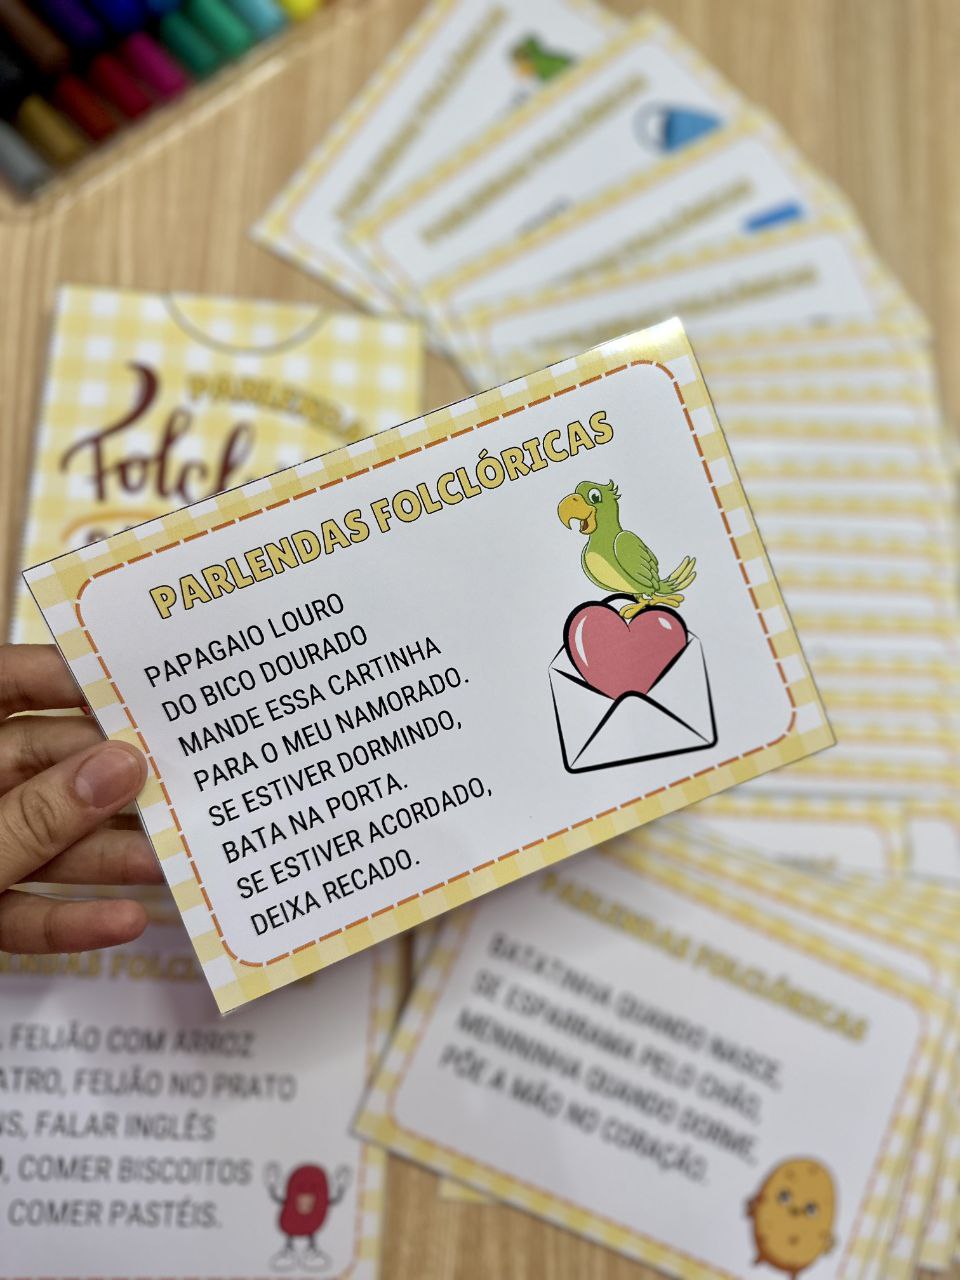 PARLENDAS FOLCLÓRICAS
PAPAGAIO LOURO
DO BICO DOURADO
MANDE ESSA CARTINHA
PARA O MEU NAMORADO.
SE ESTIVER DORMINDO,
BATA NA PORTA.
SE ESTIVER ACORDADO,
DEIXA RECADO.
FEIJÃO COM ARROZ
FEIJÃO NO PRATO
FALAR INGLÊS
COMER BISCOITOS
COMER PASTÉIS.
PARLENDAS FOLCLÓRICAS
BATATINHA QUANDO NASCE,
SE ESPARRAMA PELO CHÃO,
MENININHA QUANDO DORME,
PÕE A MÃO NO CORAÇÃO.